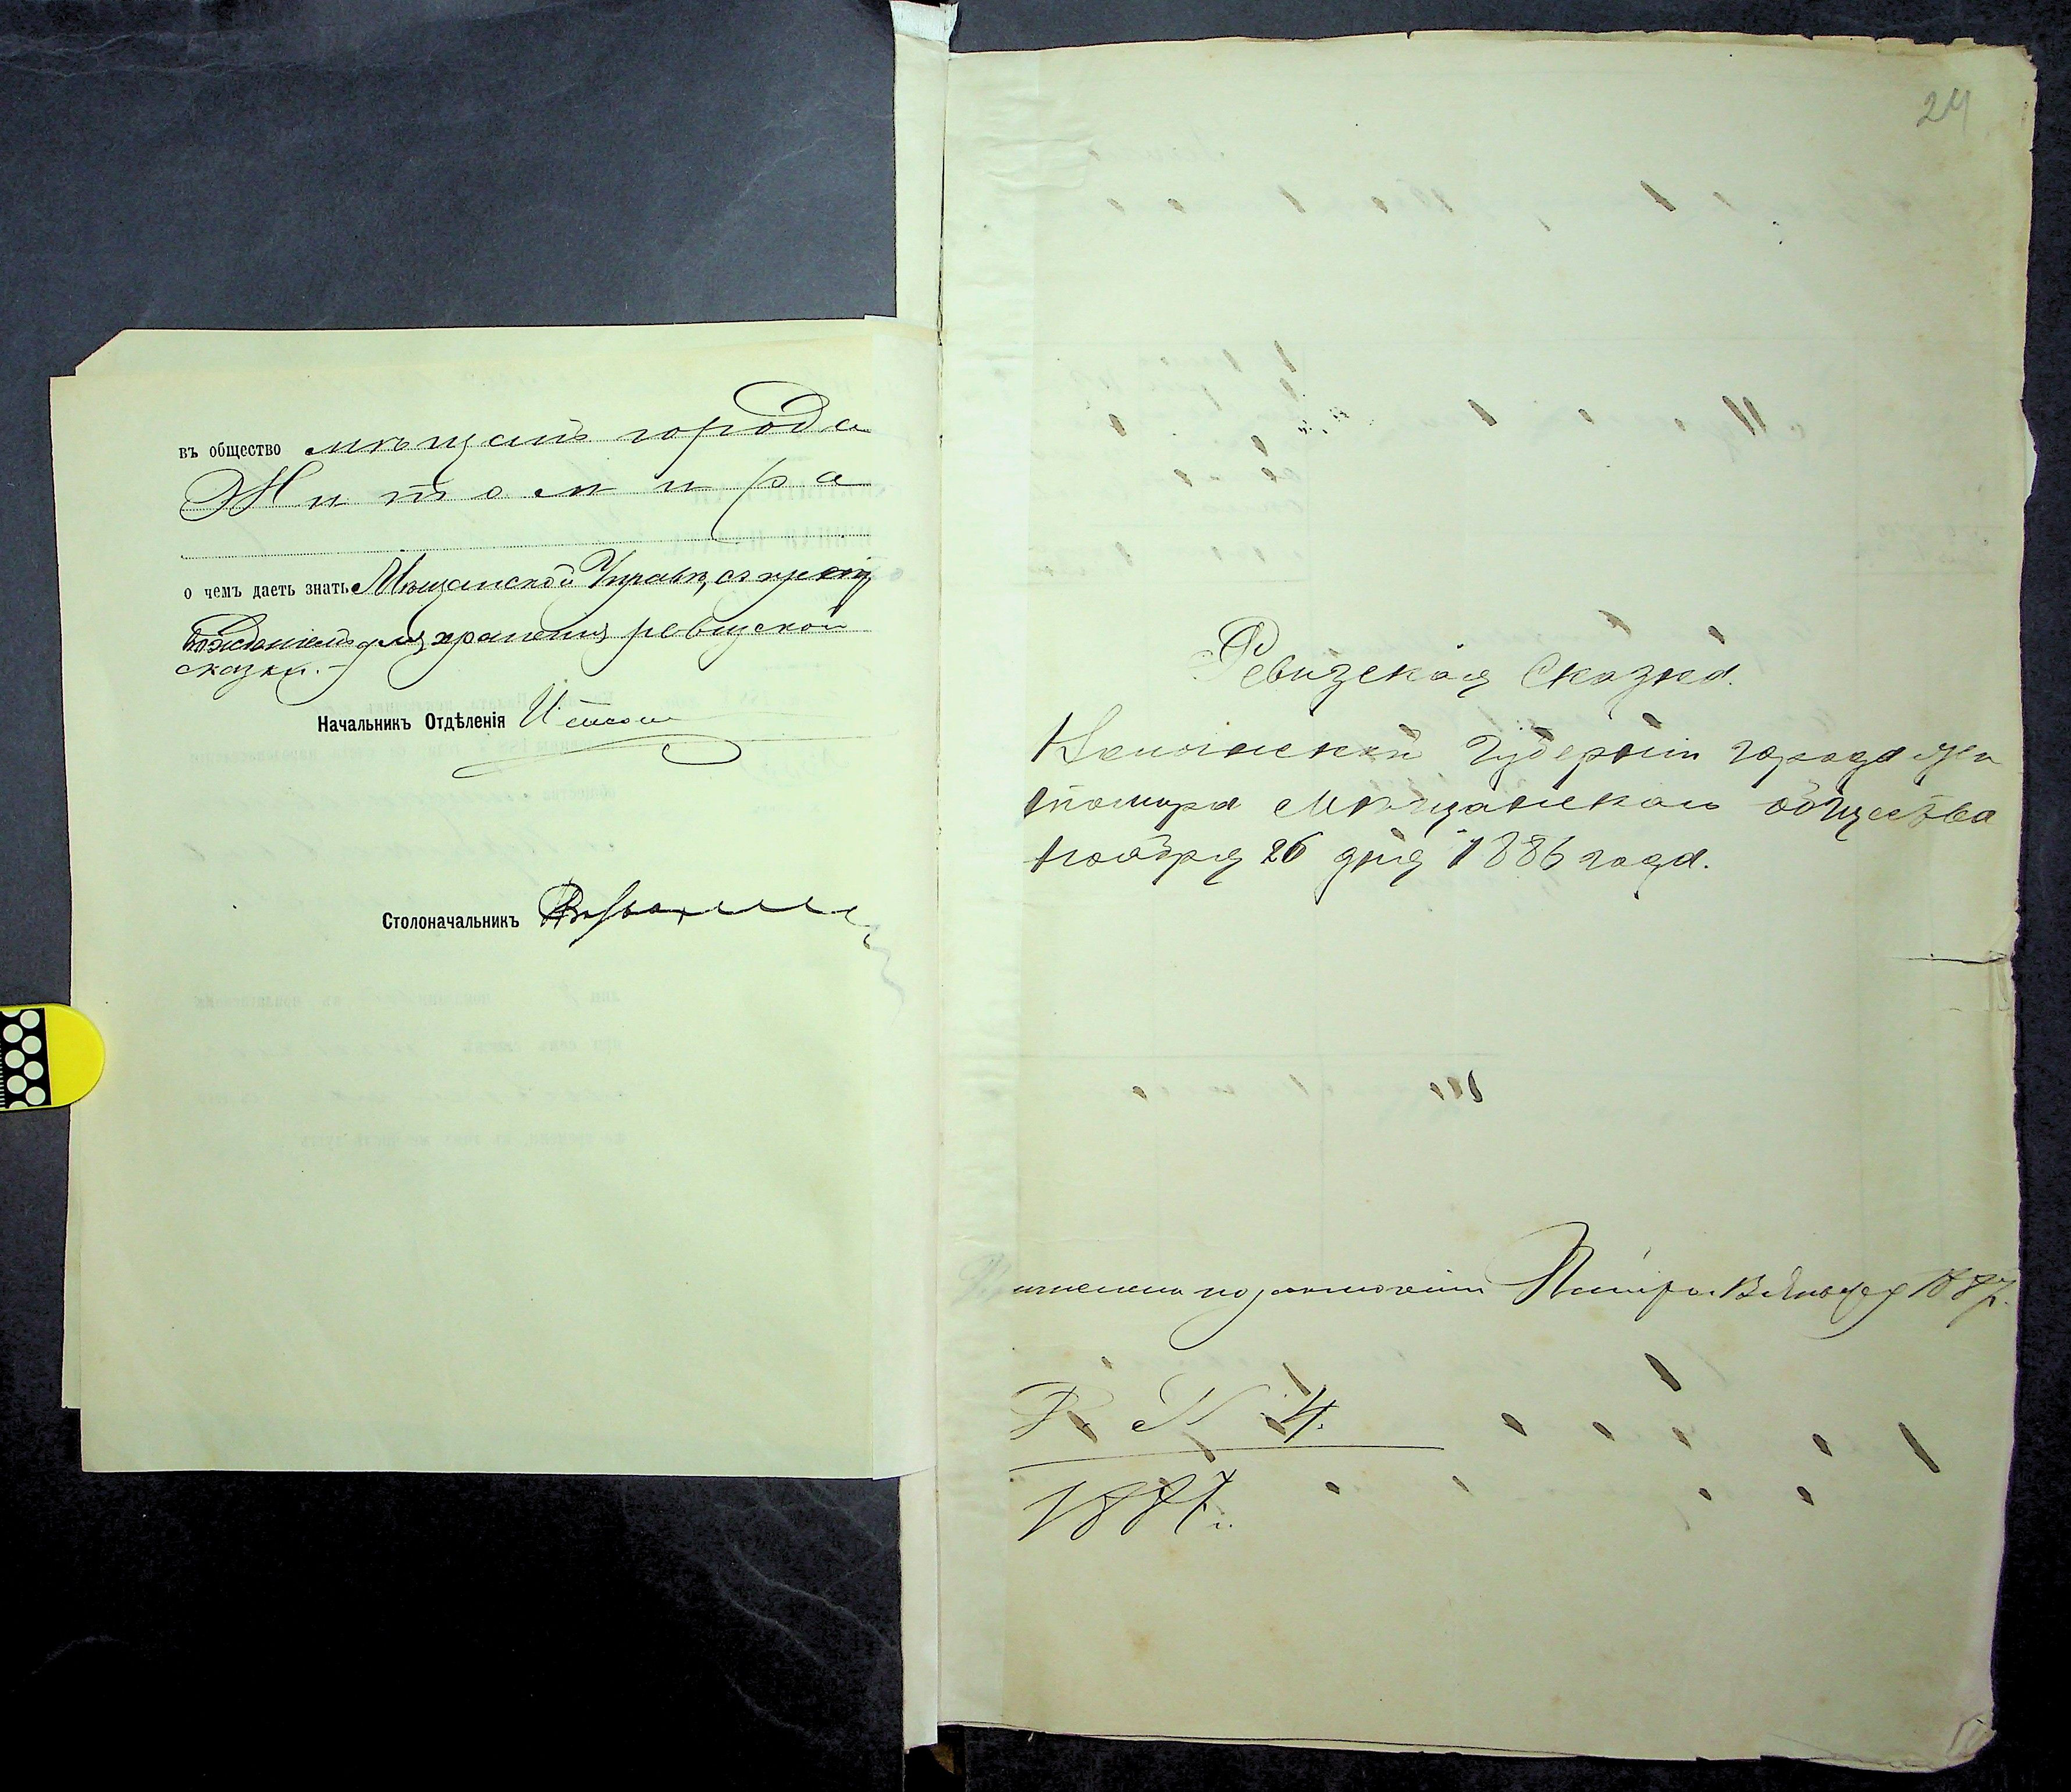 въ общество мѣщанъ города
Житомира
о чемъ даетъ знать Мѣщанской Управѣ, съ препро
вожденіемъ для храненія ревизской
сказки.-
Начальникъ Отдѣленія
Столоначальникъ
24
Ревизская Сказка.
Волынской Губерніи города Жи
томира Мѣщанскаго общества
Ноября 26 дня 1886 года.
Палаты 13 Января 1887.
Р К 4.
1887 г.